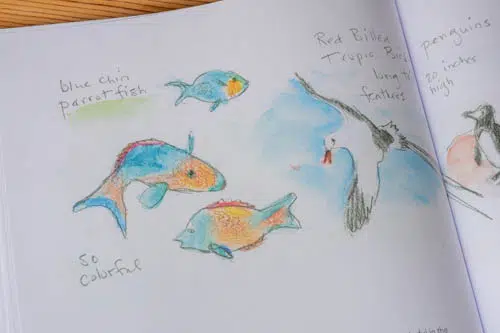 blue chin
parrot fish
so
colorful
Red Billed
Tropic Bird
long
feathers
penguins
20 inches
high